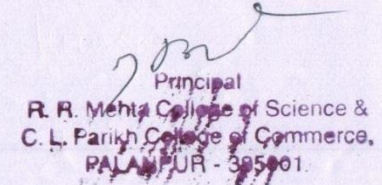 Principal
R. R. Mehta College of Science &
C. L. Parikh College of Commerce,
PALANPUR - 385001.